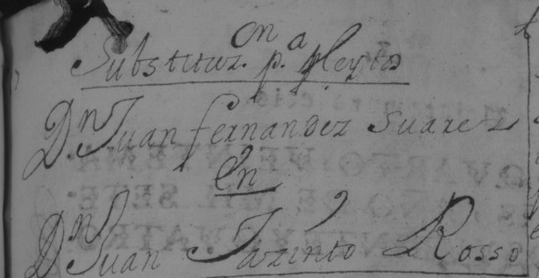 Substituz.on p.a pleytos
Dn Juan fernandez Suarez
En
Dn Juan Jazinto Rosso